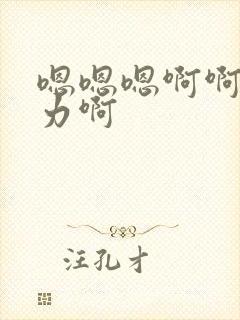 嗯嗯嗯啊啊
力啊
汪孔才